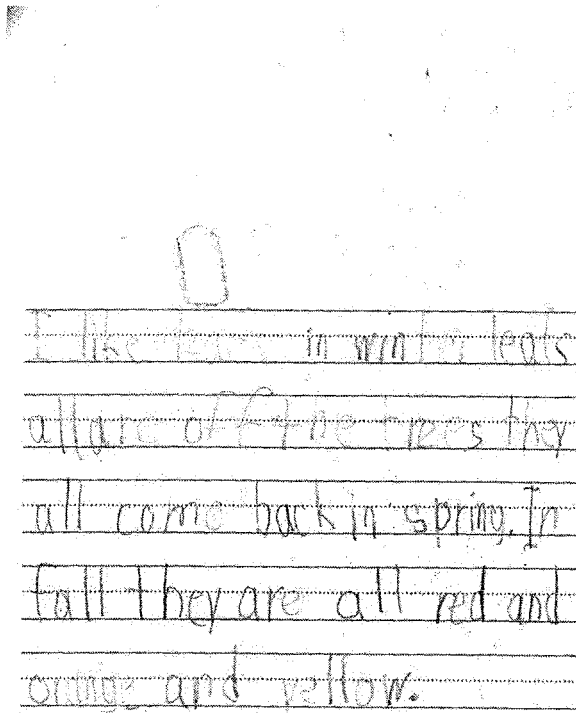 I like leafs in winter leafs
all are off the trees they
all come back in spring. In
fall they are all red and
orange and yellow.